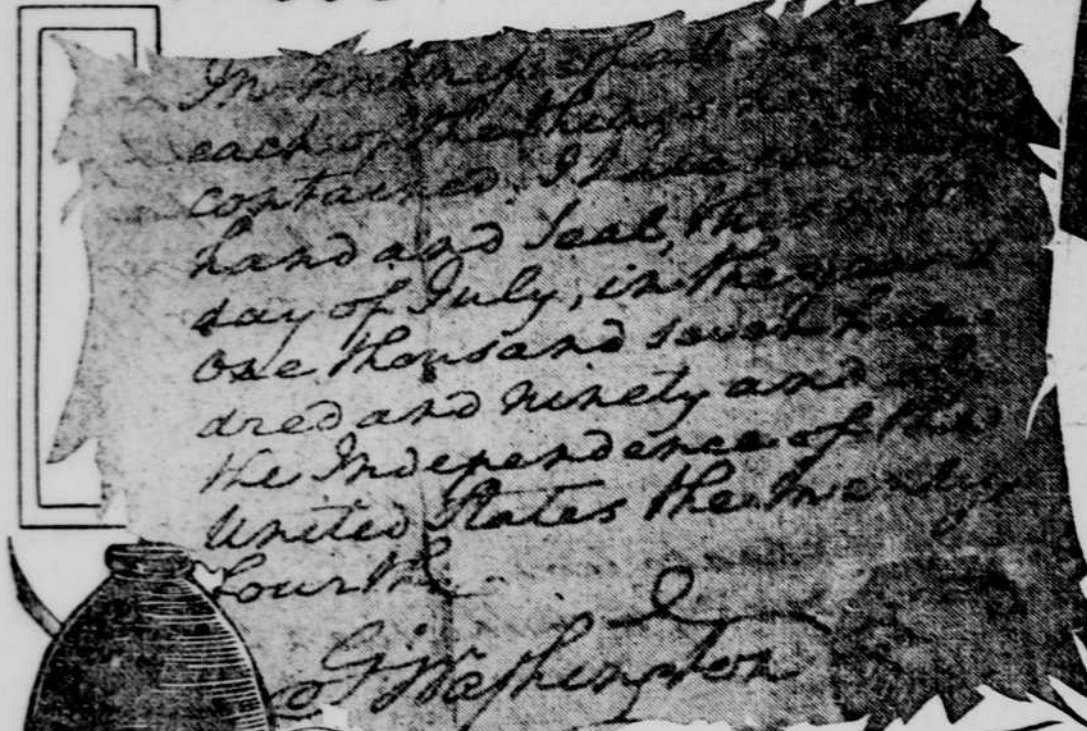 In witness of all
each of the things
contained. I have
hand and Seal, this
day of July, in the year
one thousand seven hun-
dred and ninety and
the Independence of the
United States the twenty
fourth
Go Washington